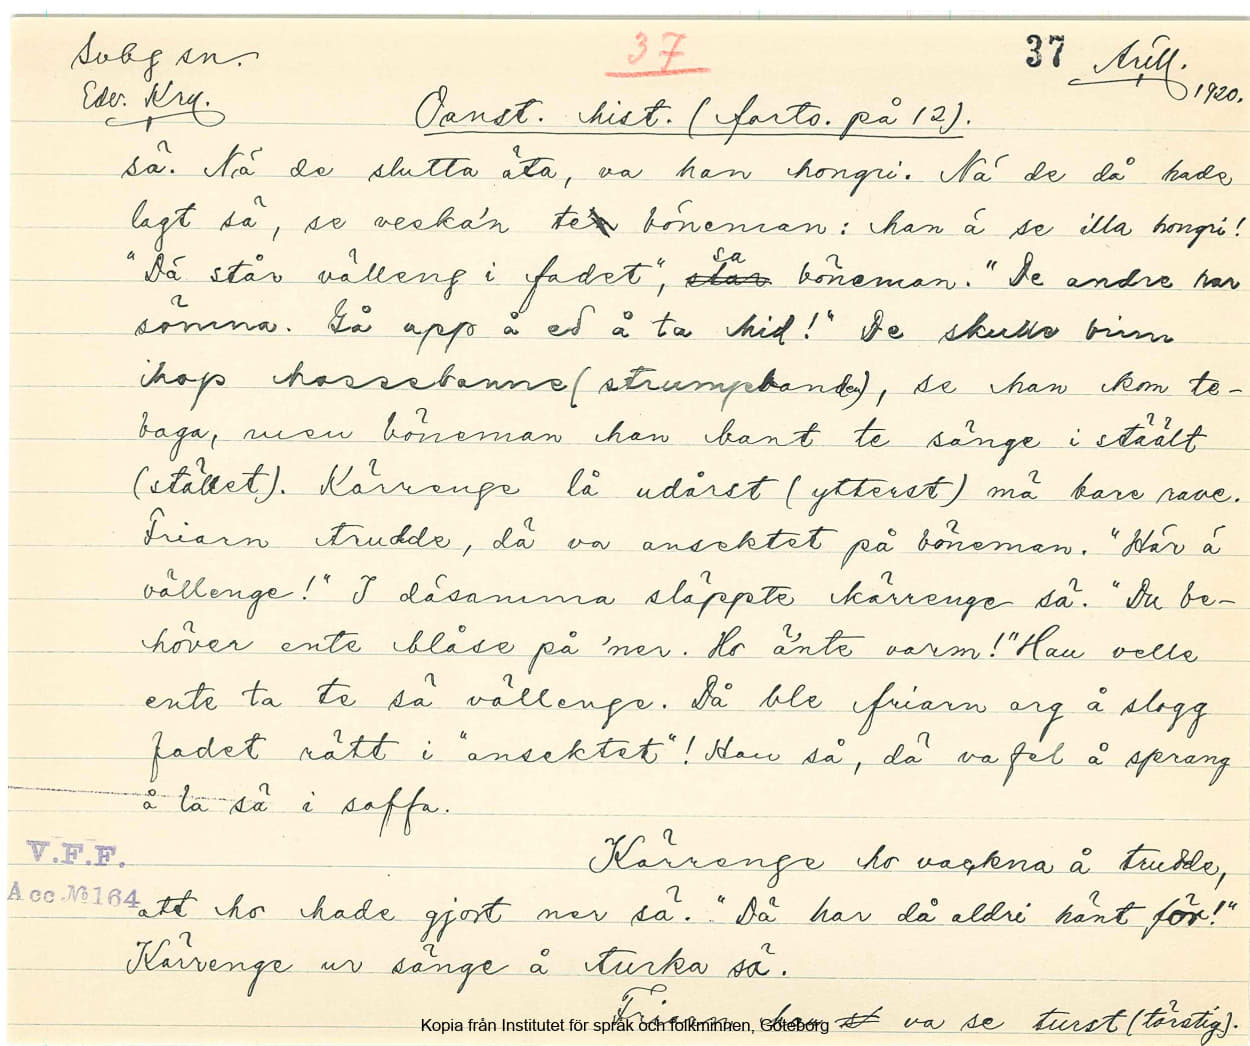 Svbg sn.
37
37 Arill.
Edv. Kru. 1920.
Oanst. hist. (forts. på 12).
sä. Nä de slutta äta, va han hongri. Nä de då hade
lagt sä, se veska'n te'n böneman: han ä se illa hongri!
"Dä står välleng i fadet", sa böneman. "De andre har
sömna. Gå app å ed å ta hid!" De skulle binn
ihop hossebanne (strumpebanden), se han kom te-
baga, men böneman han bant te sänge i stäält
(stället). Kärrenge lå udårst (ytterst) mä bare rave.
Friarn trudde, dä va ansektet på böneman. "Här ä
vällenge!" I däsamma släppte kärrenge sä. "Du be-
höver ente blåse på 'ner. Ho ä'nte varm!" Hau velle
ente ta te sä vällenge. Då ble friarn arg å slogg
fadet rätt i "ansektet"! Hau så, dä va fel å sprang
å la sä i soffa.
V.F.F.
Kärrenge ho vackna å trudde,
Acc. № 164
att ho hade gjort ner sä. "Dä har då aldri hänt för!"
Kärrenge ur sänge å turka sä.
Friarn han va se turst (törstig).
Kopia från Institutet för språk och folkminnen, Göteborg